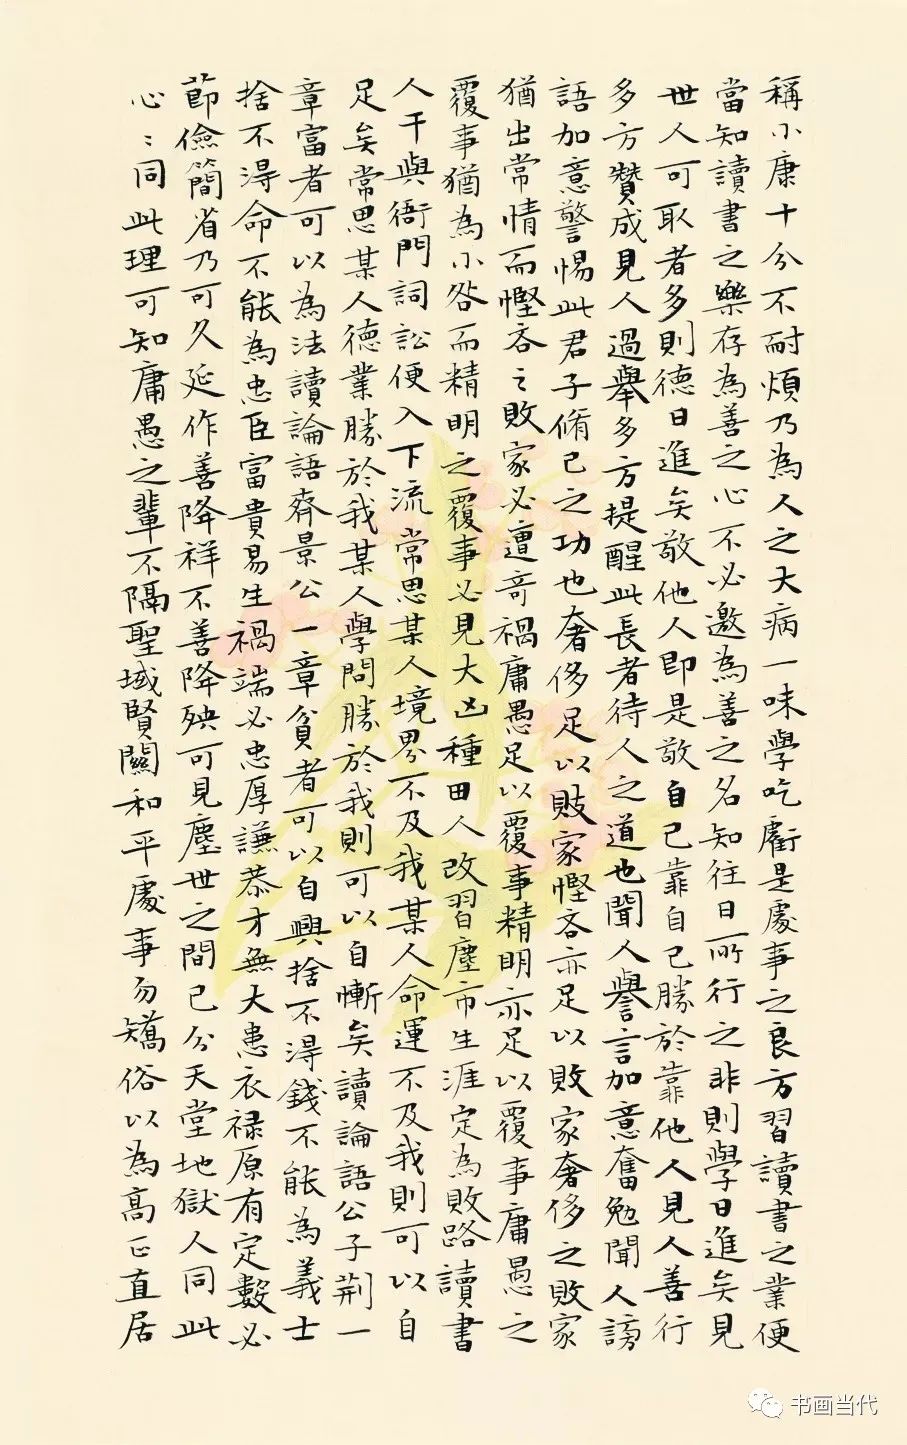 稱小康十分不耐煩乃為人之大病一味學吃虧是處事之良方習讀書之業便
當知讀書之樂存為善之心不必邀為善之名知往日所行之非則學日進矣見
世人可取者多則德日進矣敬他人即是敬自己靠自己勝於靠他人見人善行
多方贊成見人過舉多方提醒此長者待人之道也聞人譽言加意奮勉聞人謗
語加意警惕此君子脩己之功也奢侈足以敗家慳吝亦足以敗家奢侈之敗家
猶出常情而慳吝之敗家必遭奇禍庸愚足以覆事精明亦足以覆事庸愚之
覆事猶為小咎而精明之覆事必見大凶種田人改習塵市生涯定為敗路讀書
人干與衙門詞訟便入下流常思某人境界不及我某人命運不及我則可以自
足矣常思某人德業勝於我某人學問勝於我則可以自慚矣讀論語公子荆一
章富者可以為法讀論語齊景公一章貧者可以自興捨不得錢不能為義士
捨不得命不能為忠臣富貴易生禍端必忠厚謙恭才無大患衣禄原有定數必
節儉簡省乃可久延作善降祥不善降殃可見塵世之間已分天堂地獄人同此
心〻同此理可知庸愚之輩不隔聖域賢關和平處事勿矯俗以為高正直居
书画当代